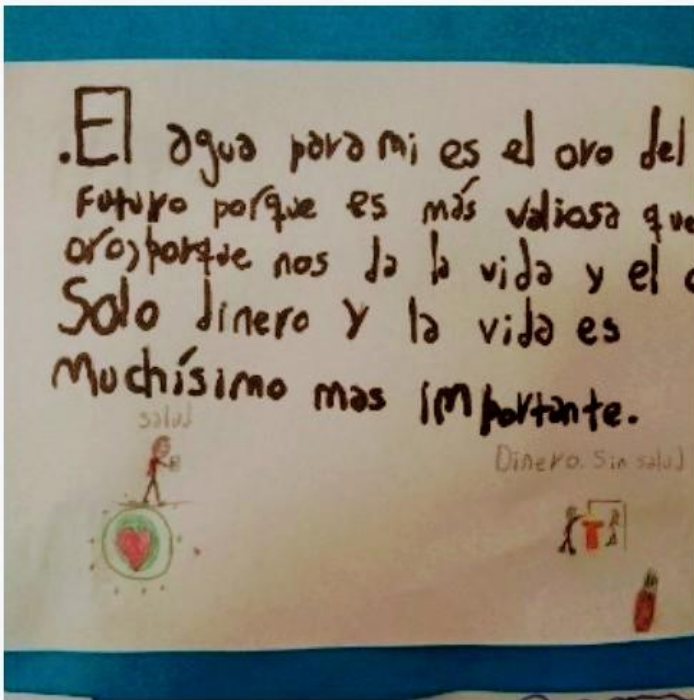 .El agua para mi es el oro del
Futuro porque es más valiosa que
oro, porque nos da la vida y el
Solo dinero y la vida es
Muchísimo mas importante.
salud
Dinero. Sin salud